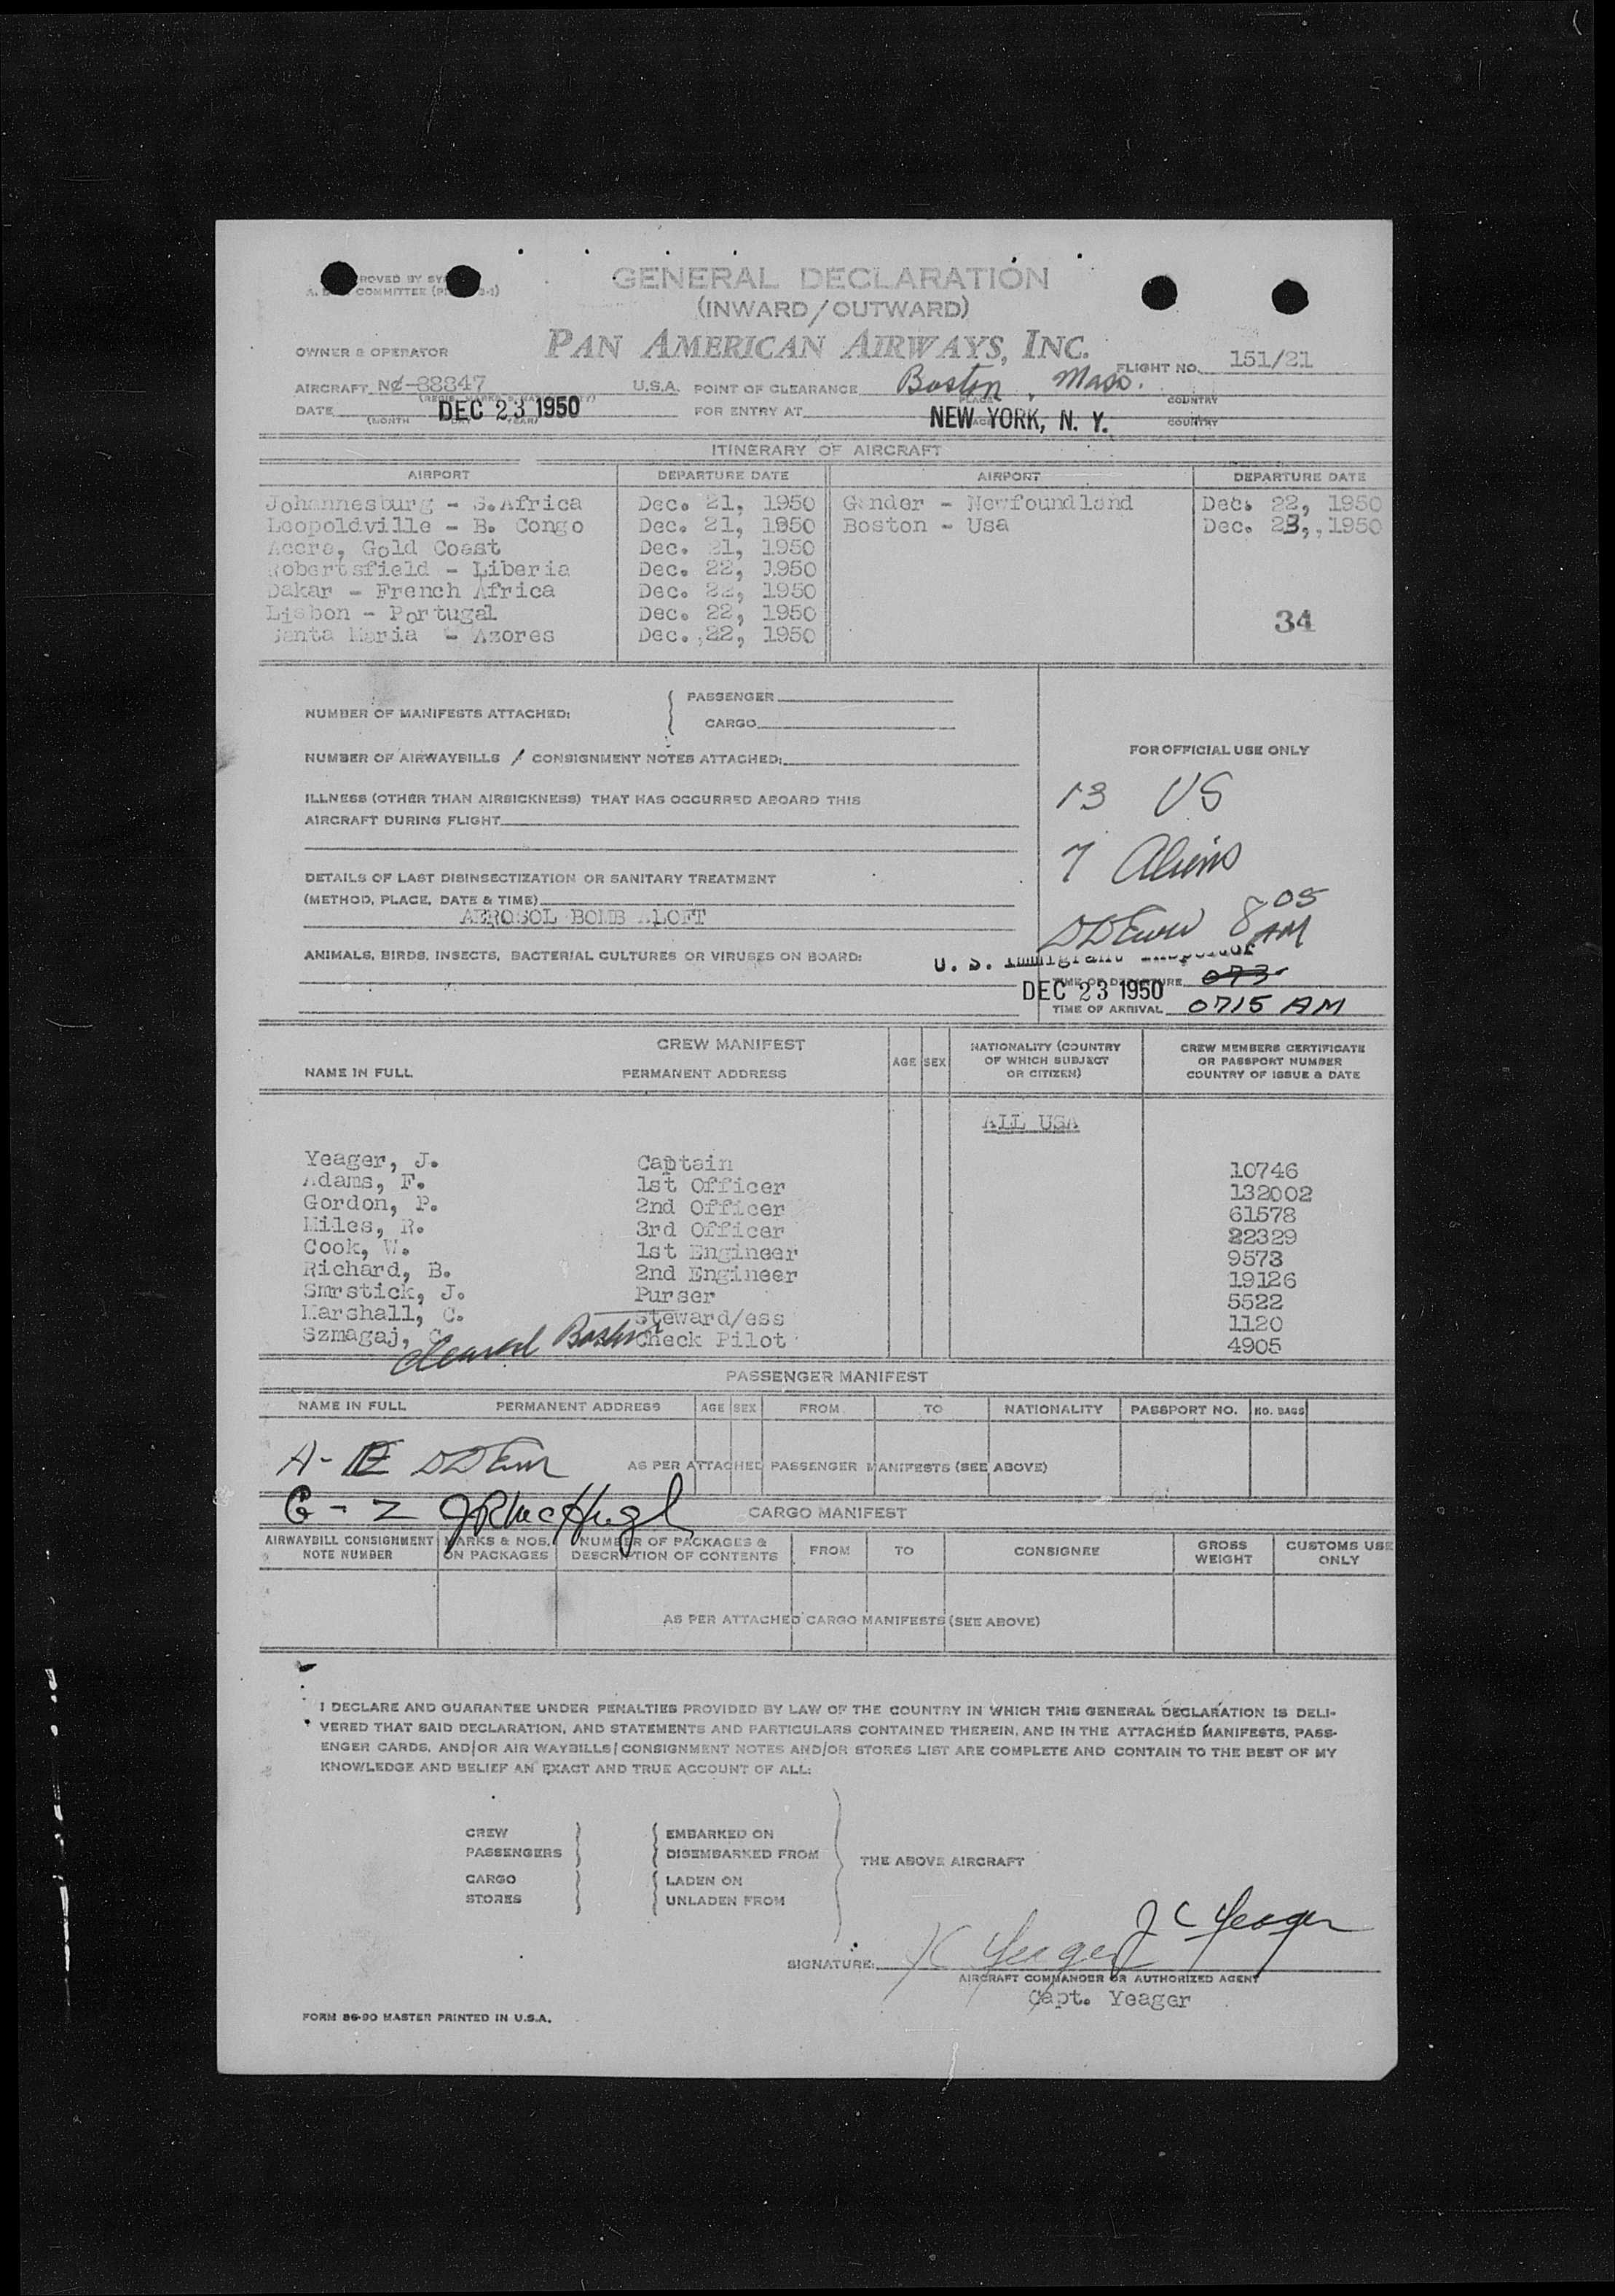 GENERAL DECLARATION
(INWARD/OUTWARD)
COMMITTEE
OWNER & OPERATOR PAN AMERICAN AIRWAYS, INC. FLIGHT NO. 151/21
AIRCRAFT NC-88847 U.S.A. POINT OF CLEARANCE Boston, Mass.
PLACE COUNTRY
DATE DEC 23 1950 FOR ENTRY AT NEW YORK, N. Y.
(MONTH DAY YEAR) COUNTRY
ITINERARY OF AIRCRAFT
AIRPORT DEPARTURE DATE AIRPORT DEPARTURE DATE
Johannesburg - S.Africa Dec. 21, 1950 Gander - Newfoundland Dec. 22, 1950
Leopoldville - B. Congo Dec. 21, 1950 Boston - Usa Dec. 23,, 1950
Accra, Gold Coast Dec. 21, 1950
Robertsfield - Liberia Dec. 22, 1950
Dakar - French Africa Dec. 22, 1950
Lisbon - Portugal Dec. 22, 1950
Santa Maria - Azores Dec. 22, 1950
34
NUMBER OF MANIFESTS ATTACHED: { PASSENGER
CARGO
FOR OFFICIAL USE ONLY
NUMBER OF AIRWAYBILLS / CONSIGNMENT NOTES ATTACHED:
13 US
ILLNESS (OTHER THAN AIRSICKNESS) THAT HAS OCCURRED ABOARD THIS
AIRCRAFT DURING FLIGHT
7 Aliens
DETAILS OF LAST DISINSECTIZATION OR SANITARY TREATMENT
(METHOD, PLACE, DATE & TIME)
AEROSOL BOMB ALOFT
8 05 AM
ANIMALS, BIRDS, INSECTS, BACTERIAL CULTURES OR VIRUSES ON BOARD:
U. S. Immigrant Inspector
TIME OF DEPARTURE 073
DEC 23 1950
TIME OF ARRIVAL 0715 AM
CREW MANIFEST
NAME IN FULL PERMANENT ADDRESS AGE SEX NATIONALITY (COUNTRY OF WHICH SUBJECT OR CITIZEN) CREW MEMBERS CERTIFICATE OR PASSPORT NUMBER COUNTRY OF ISSUE & DATE
ALL USA
Yeager, J. Captain 10746
Adams, F. 1st Officer 132002
Gordon, P. 2nd Officer 61578
Miles, R. 3rd Officer 22329
Cook, W. 1st Engineer 9573
Richard, B. 2nd Engineer 19126
Smrstick, J. Purser 5522
Marshall, C. Steward/ess 1120
Szmagaj, C. Check Pilot 4905
Cleared Boston
PASSENGER MANIFEST
NAME IN FULL PERMANENT ADDRESS AGE SEX FROM TO NATIONALITY PASSPORT NO. NO. BAGS
A - F
AS PER ATTACHED PASSENGER MANIFESTS (SEE ABOVE)
G - Z JR McHugh
CARGO MANIFEST
AIRWAYBILL CONSIGNMENT NOTE NUMBER MARKS & NOS. ON PACKAGES NUMBER OF PACKAGES & DESCRIPTION OF CONTENTS FROM TO CONSIGNEE GROSS WEIGHT CUSTOMS USE ONLY
AS PER ATTACHED CARGO MANIFESTS (SEE ABOVE)
I DECLARE AND GUARANTEE UNDER PENALTIES PROVIDED BY LAW OF THE COUNTRY IN WHICH THIS GENERAL DECLARATION IS DELI-
VERED THAT SAID DECLARATION, AND STATEMENTS AND PARTICULARS CONTAINED THEREIN, AND IN THE ATTACHED MANIFESTS, PASS-
ENGER CARDS, AND/OR AIR WAYBILLS/CONSIGNMENT NOTES AND/OR STORES LIST ARE COMPLETE AND CONTAIN TO THE BEST OF MY
KNOWLEDGE AND BELIEF AN EXACT AND TRUE ACCOUNT OF ALL:
CREW EMBARKED ON
PASSENGERS DISEMBARKED FROM
THE ABOVE AIRCRAFT
CARGO LADEN ON
STORES UNLADEN FROM
J C Yeager
SIGNATURE: JC Yeager
AIRCRAFT COMMANDER OR AUTHORIZED AGENT
Capt. Yeager
FORM 86-90 MASTER PRINTED IN U.S.A.